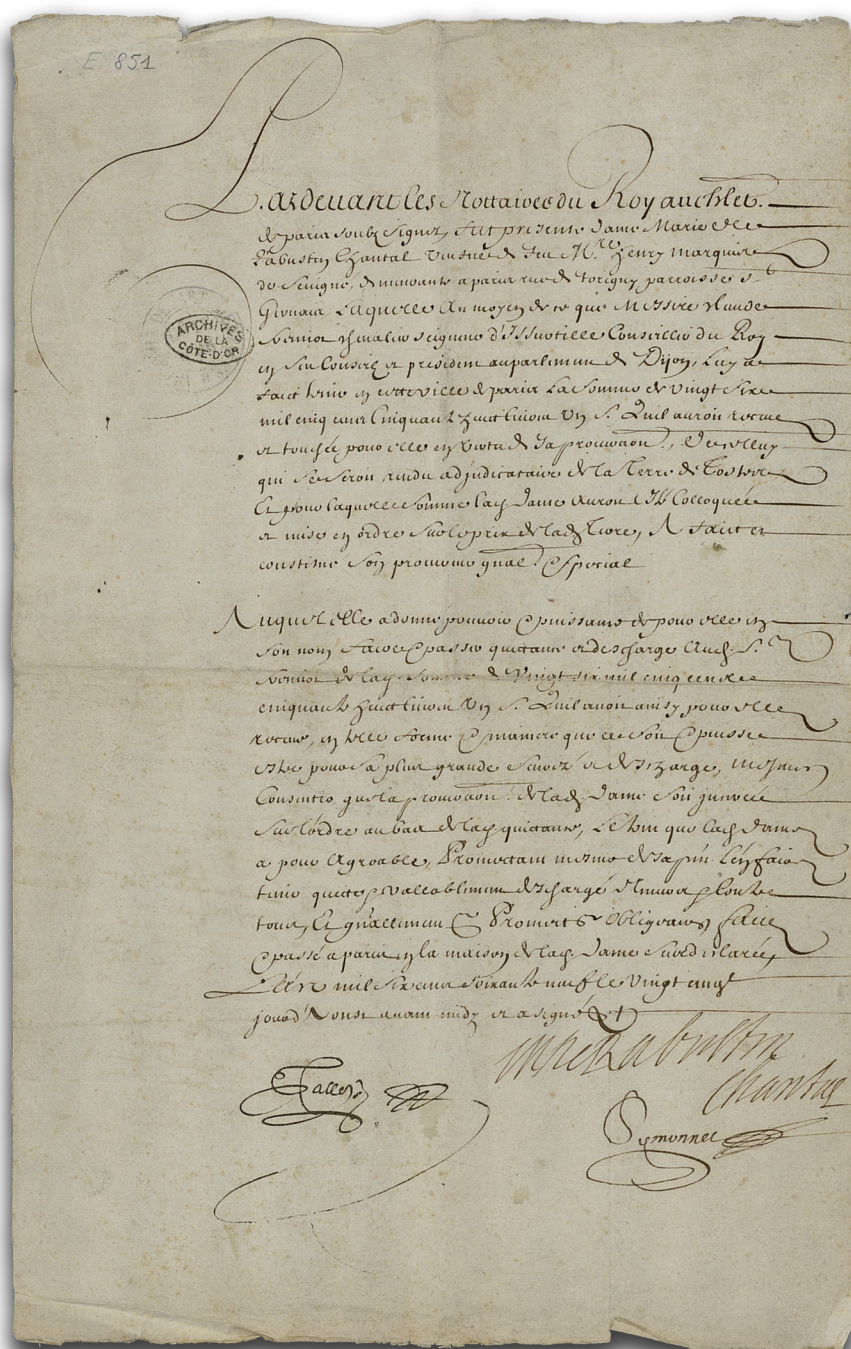 E. 851
ARCHIVES
DE LA
CÔTE-D'OR
Pardevant les Nottaires du Roy au chlet.
de paris soubz signez, fut presente dame Marie de
Rabustin Chantal veufve de feu Mre. henry marquis
de Sevigné, demeurante a paris rue de torigny parroisse st
Gervais Laquelle au moyen de ce que Messire Claude
chevalier seigneur d'Is sur tille Conseiller du Roy
en ses Conseilz et president au parlement de Dijon, luy a
faict tenir en cette ville de paris La somme de vingt six
mil cinq cens Cinquante huict livres un s. Quil auroit receue
et touchée pour elle en vertu de sa procuraon., de celluy
qui se seroit rendu adjudicataire de la Terre de
Et pour laquelle somme lad. dame auroit Esté Colloquée
et mise en ordre sur le prix de lad. terre, A faict et
constitué son procureur gnal. & special
Auquel elle a donné pouvoir & puissance de pour elle en
son nom faire & passer quictance et descharge Aud. Sr.
de lad. somme de Vingt six mil cinq cens
cinquante huict livres un s. Quil avoit ainsy pour elle
receue, en telle forme & maniere que ce soit & puisse
estre pour sa plus grande seureté et descharge, mesmes
Consentir que la procuraon. de lad. dame soit
sur l'ordre au bas de lad. quictance, Le tout que lad. dame
a pour Agreable, Promectant mesme de sa part l'en faire
tenir quicte & vallablement deschargé Envers & contre
tous, Et gnallement & Promects. Obligeant Faict
& passé a paris en la maison de lad. dame susd. declarée,
L'an mil six cens soixante neuf le vingt cinqe
jour d'Aoust avant midy et a signé
marie de Rabustin
Chantal
Gallois
Symonnet